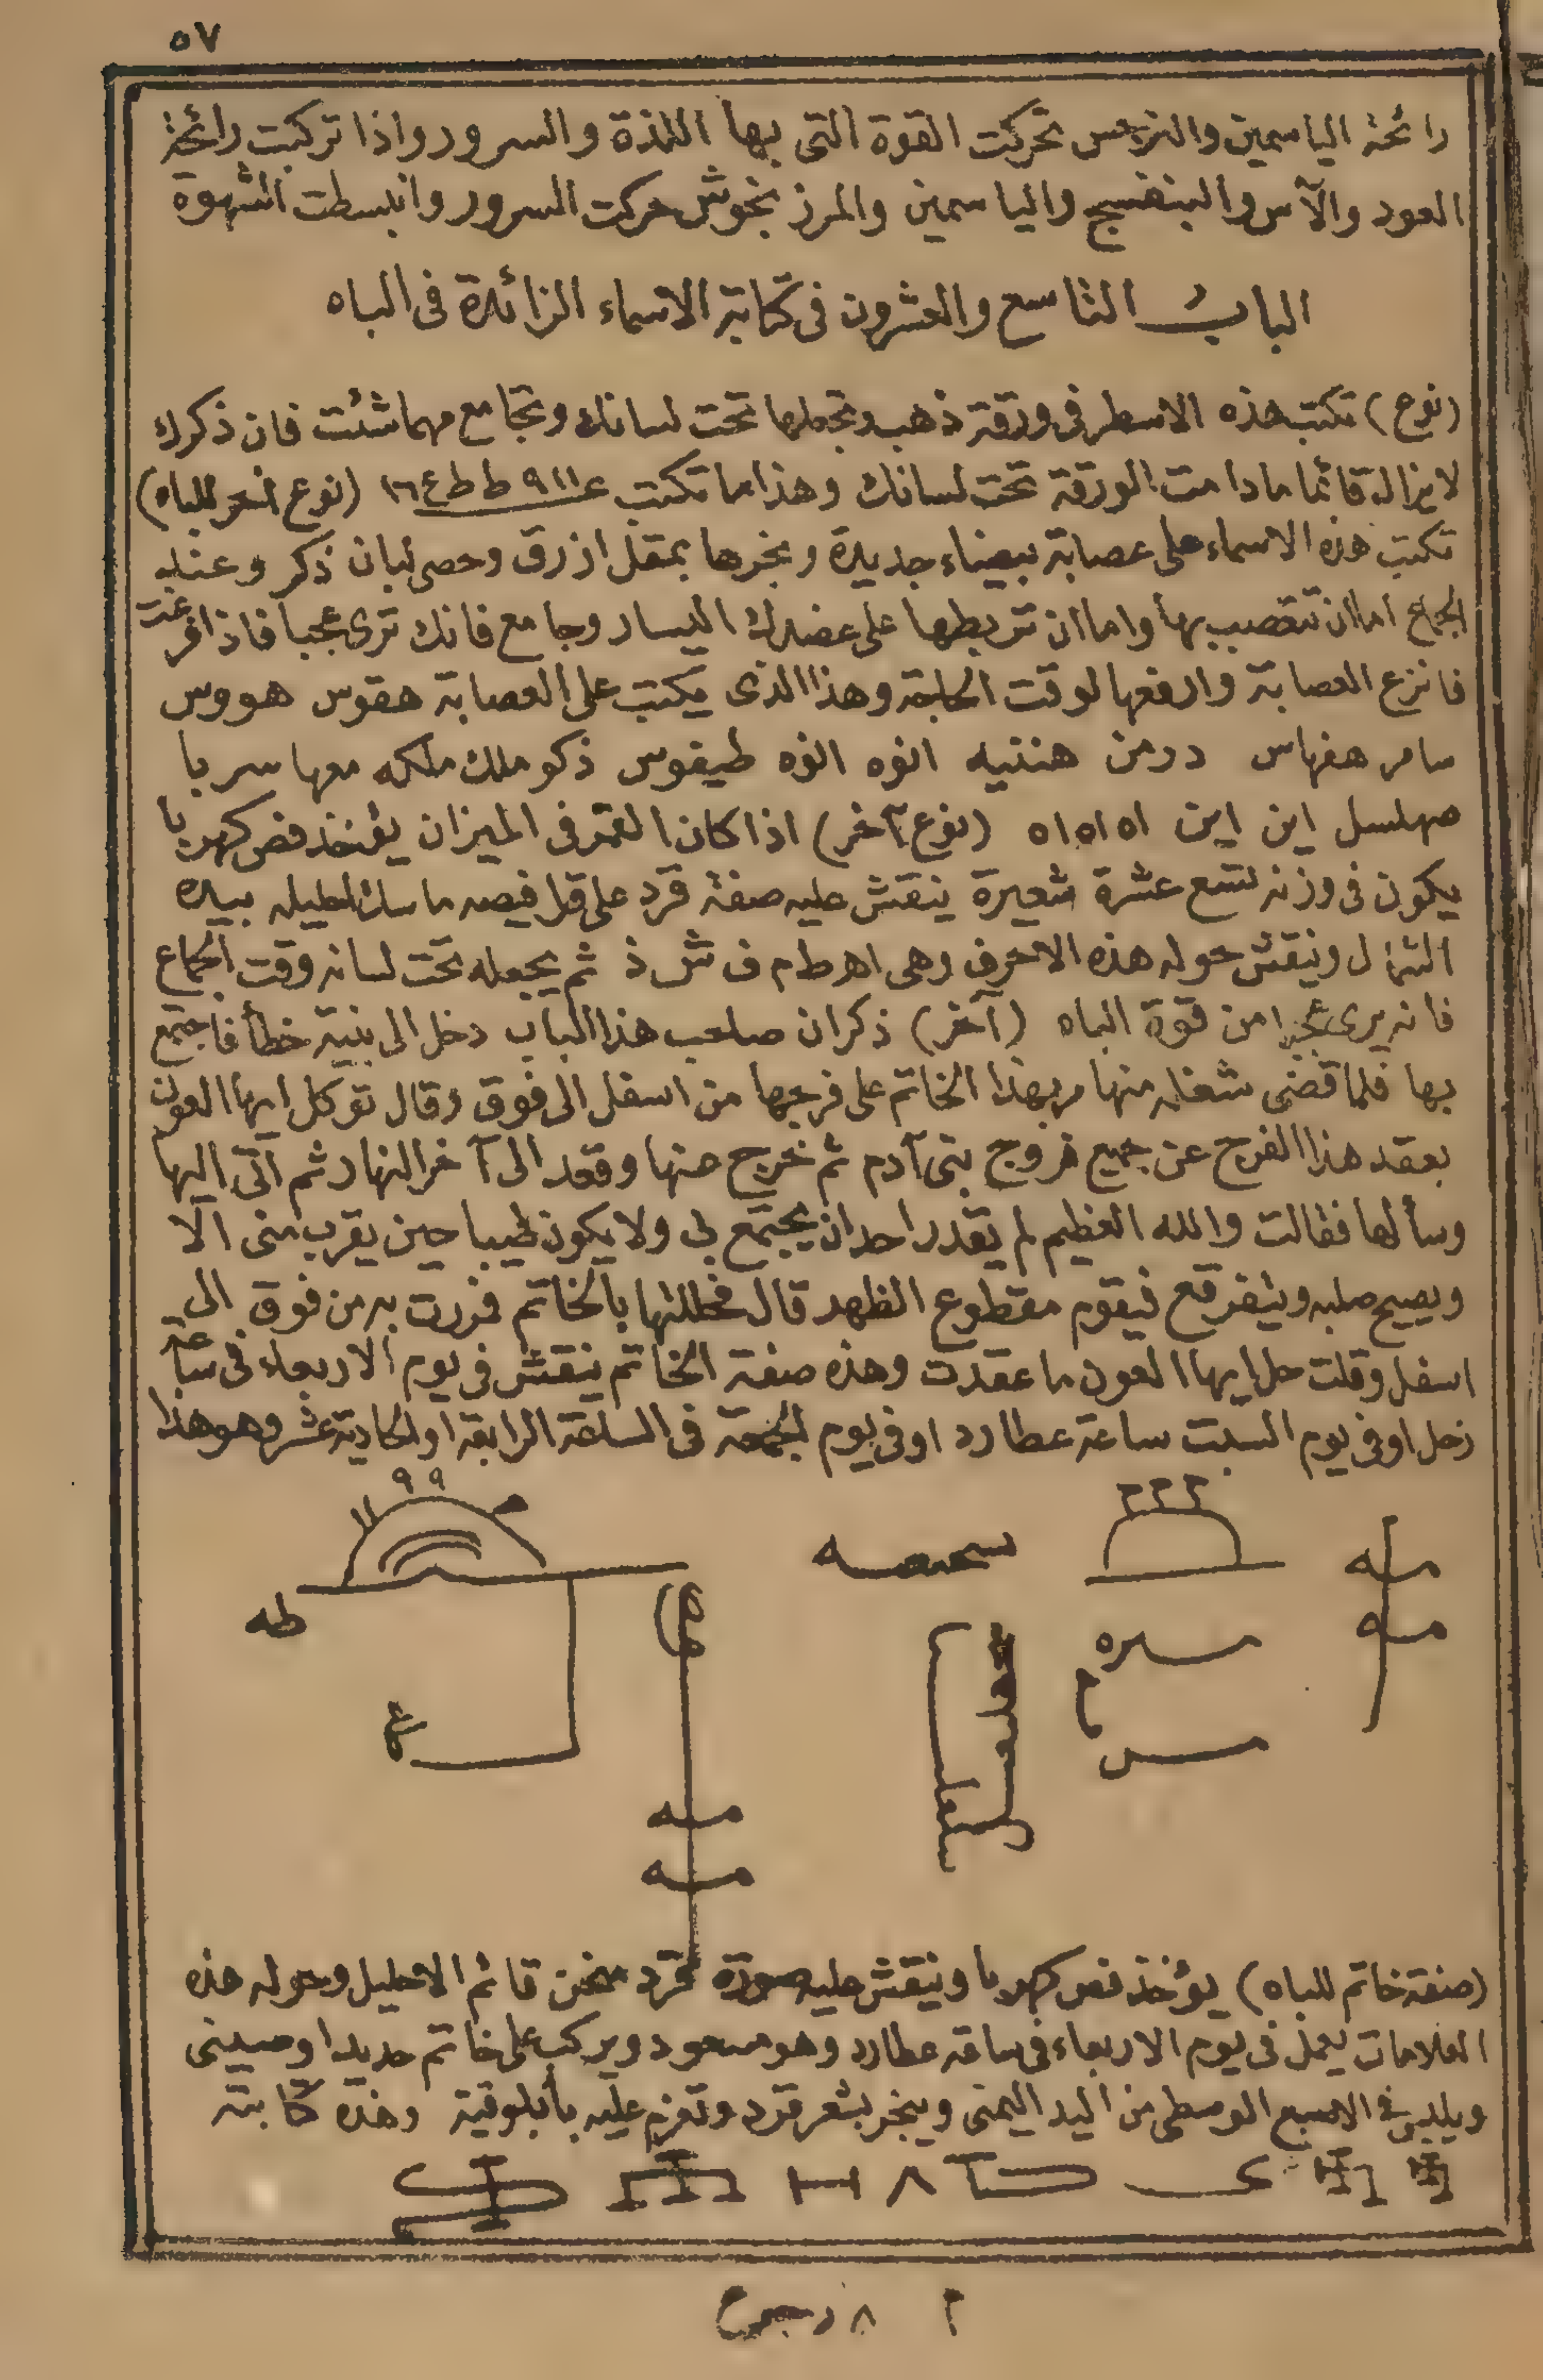 ٥٧
رائحة الياسمين والنرجس تحركت القوة التى بها اللذة والسرور واذا تركبت رائحة
العود والآس والبنفسج والياسمين والمرزنجوش حركت السرور وانبسطت الشهوة
الباب التاسع والعشرون فى كتابة الاسماء الزائدة فى الباه
(نوع) تكتب هذه الاسطر فى ورقة ذهب وتجعلها تحت لسانك وتجامع مهما شئت فان ذكرك
لا يزال قائما مادامت الورقة تحت لسانك وهذا ما تكتب ع ٩١١ ط ط ع ١٦ (نوع آخر للباه)
تكتب هذه الاسماء على عصابة بيضاء جديدة وبخرها بمقل ازرق وحصى لبان ذكر وعند
الجماع اما ان تتعصب بها واما ان تربطها على عضدك اليسار وجامع فانك ترى عجبا فاذا فرغت
فانزع العصابة وارفعها لوقت الحاجة وهذا الذى يكتب على العصابة هقوس هووس
سامر هفهاس درمن هننيه انوه انوه طيفوس ذكو ملك ملكه معها سربا
صهلسل اين اين اه اه اه (نوع آخر) اذا كان القمر فى الميزان يؤخذ فص كهربا
يكون فى وزنه تسع عشرة شعيرة ينقش عليه صفة قرد على قرافيصه ماسك احليله بيده
الشمال وينقش حوله هذه الاحرف وهى اهـ ط م ف ش ذ ثم يجعله تحت لسانه وقت الجماع
فانه يرى عجبا من قوة الباه (آخر) ذكر ان صاحب هذا الباب دخل الى بنية خطأ فاجتمع
بها فلما قضى شغله منها مر بهذا الخاتم على فرجها من اسفل الى فوق وقال توكل ايها العون
بعقد هذا الفرج عن جميع فروج بنى آدم ثم خرج عنها وقعد الى آخر النهار ثم اتى اليها
وسألها فقالت والله العظيم لم يقدر احد ان يجتمع بى ولا يكون طيبا حين يقرب منى الا
ويصيح صلبه ويتفرقع فيقوم مقطوع الظهر قال فحللتها بالخاتم فمررت به من فوق الى
اسفل وقلت حل ايها العون ما عقدت وهذه صفة الخاتم ينقش فى يوم الاربعاء فى ساعة
زحل او فى يوم السبت ساعة عطارد او فى يوم الجمعة فى الساعة الرابعة او الحادية عشر وهو هذا
٩٩
طه
(صفة خاتم للباه) يؤخذ فص كهربا وينقش عليه صورة قرد قائم الاحليل وحوله هذه
العلامات يعمل فى يوم الاربعاء فى ساعة عطارد وهو مسعود ويركب على خاتم حديد او صينى
ويلبس فى الاصبع الوسطى من اليد اليمنى ويبخر بشعر قرد وتعزم عليه وهذه كتابته
٨
٨ رجوع ٢